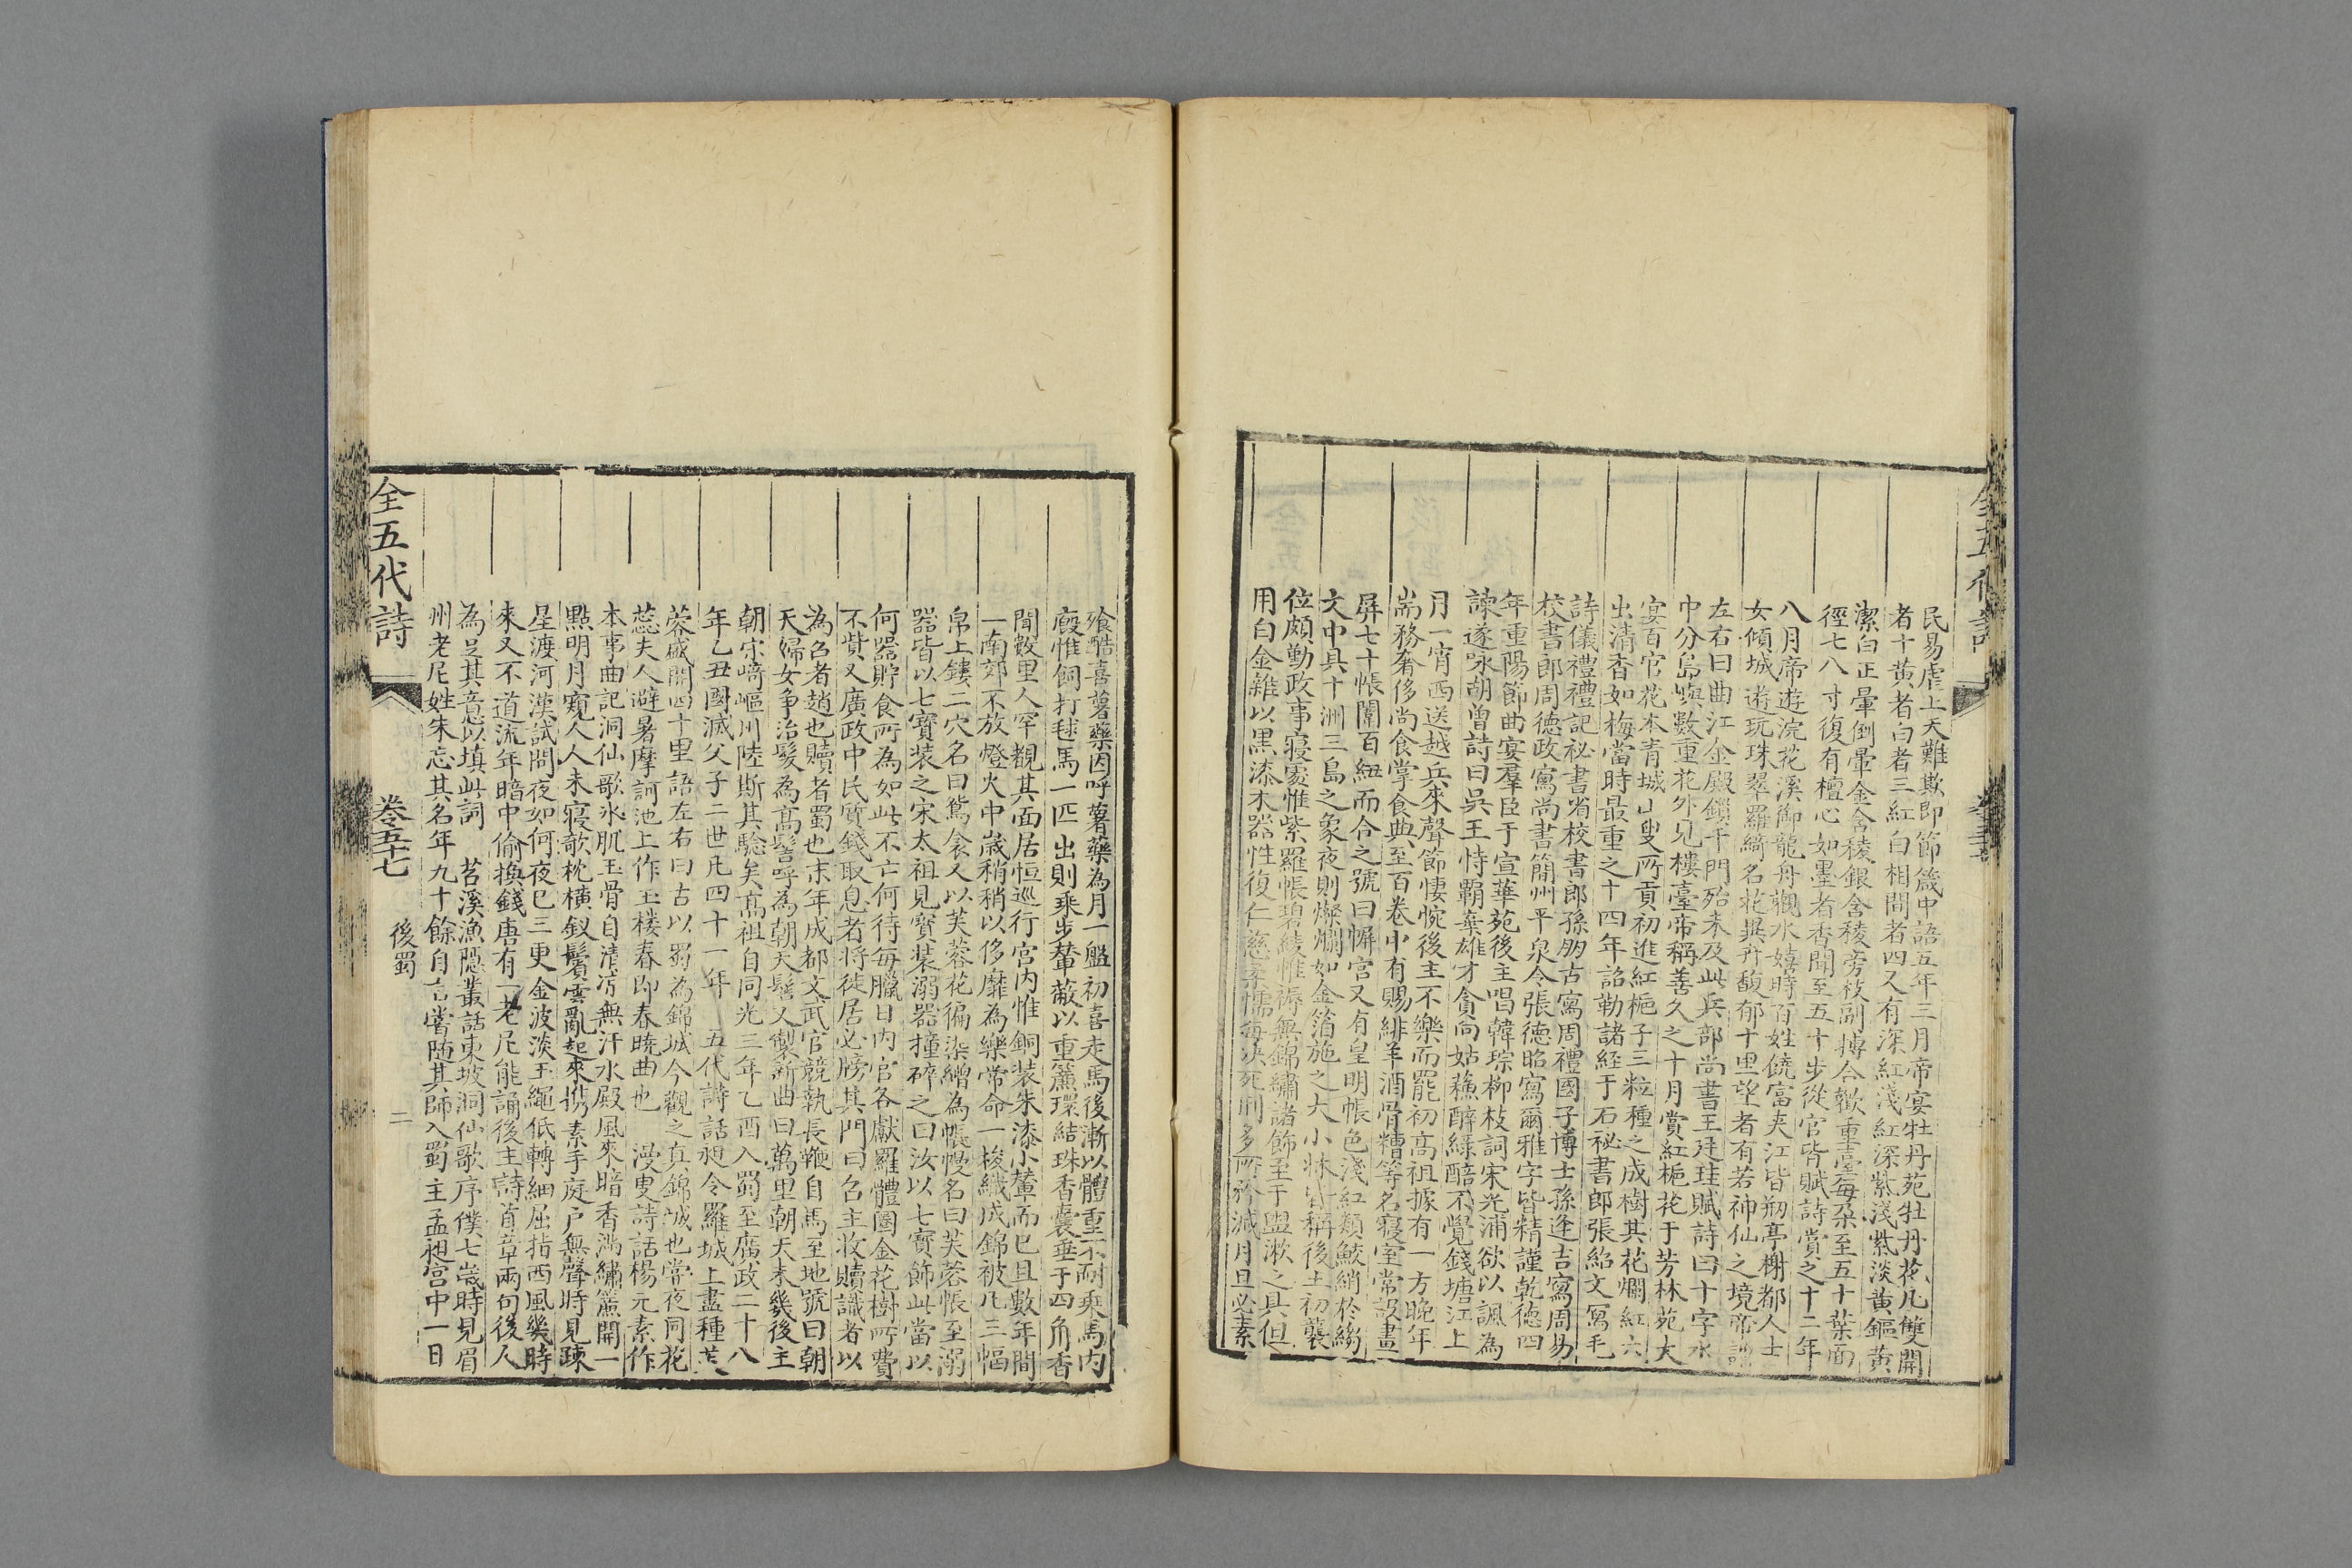 民易虐上天難欺即節箴中語五年三月帝宴牡丹苑牡丹花凡雙開
者十黄者白者三紅白相間者四又有深紅淺紅深紫淺紫淡黄鏂黄
潔白正暈倒暈金含稜銀含稜旁枝副搏合歡重臺每朶至五十葉面
徑七八寸復有檀心如墨者香聞至五十步從官皆賦詩賞之十二年
八月帝遊浣花溪御龍舟觀水嬉時百姓饒富夹江皆剏亭榭都人士
女傾城遊玩珠翠羅綺名花異卉馥郁十里望者有若神仙之境帝謂
左右曰曲江金殿鎖千門殆未及此兵部尚書王廷珪賦詩曰十字水
中分島嶼數重花外見樓臺帝稱善久之十月賞紅梔花于芳林苑大
宴百官花本青城山叟所貢初進紅梔子三粒種之成樹其花爛紅六
出清香如梅當時最重之十四年詔勒諸経于石祕書郎張紹文寫毛
詩儀禮禮記祕書省校書郎孫朋古寫周禮國子博士孫逢吉寫周易
校書郎周德政寫尚書簡州平泉令張德昭寫爾雅字皆精謹乾德四
年重陽節曲宴羣臣于宣華苑後主唱韓琮柳枝詞宋光浦欲以諷為
諫遂咏胡曾詩曰吳王恃覇棄雄才貪向姑蘇醉綠醅不覺錢塘江上
月一宵西送越兵來聲節悽惋後主不樂而罷初高祖據有一方晚年
耑務奢侈尚食掌食典至百卷中有賜緋羊酒骨糟等名寢室常設畫
屏七十帳闈百紐而合之號曰幈宫又有皇明帳色淺紅類鮫綃於縐
文中具十洲三島之象夜則燦爛如金箔施之大小牀皆稱後主初襲
位頗勤政事寢處惟紫羅帳碧綾帷褥無錦繡諸飾至于盥漱之具但
用白金雜以黑漆木器性復仁慈柔懦每決死刑多所矜減月旦必素
飡酷喜薯藥因呼薯藥為月一盤初喜走馬後漸以體重不耐乗馬内
廄惟飼打毬馬一匹出則乗步輦蔽以重簾環結珠香囊垂于四角香
聞數里人罕覩其面居恒巡行宫内惟銅装朱漆小輦而已且數年間
一南郊不放燈火中歲稍稍以侈靡為樂常命一梭織成錦被凡三幅
帛上鏤二穴名曰鴛衾又以芙蓉花徧染繒為帳幔名曰芙蓉帳至溺
器皆以七寶装之宋太祖見寶装溺器撞碎之曰汝以七寶飾此當以
何器貯食所為如此不亡何待每臘日内官各獻羅體圈金花樹所費
不貲又廣政中民質錢取息者将徙居必牓其門曰召主收贖識者以
為召者趙也贖者蜀也末年成都文武官競執長鞭自馬至地號曰朝
天婦女争治髮為髙髻呼為朝天髻又製新曲曰萬里朝天未幾後主
朝宋﨑嶇川陸斯其驗矣髙祖自同光三年乙酉入蜀至廣政二十八
年乙丑國滅父子二世凡四十一年 五代詩話昶令羅城上盡種芙
蓉盛開四十里語左右曰古以蜀為錦城今觀之真錦城也嘗夜同花
蕊夫人避暑摩訶池上作玉樓春即春曉曲也 漫叟詩話楊元素作
本事曲記洞仙歌氷肌玉骨自清凉無汗水殿風來暗香滿繡簾開一
點明月窺人人未寢欹枕橫釵鬢雲亂起來携素手庭户無聲時見疎
星渡河漢試問夜如何夜已三更金波淡玉繩低轉細屈指西風幾時
來又不道流年暗中偷換錢唐有一老尼能誦後主詩首章兩句後人
為足其意以填此詞 苕溪漁隱叢話東坡洞仙歌序僕七歲時見眉
州老尼姓朱忘其名年九十餘自言嘗随其師入蜀主孟昶宫中一日
全五代詩 卷五十七 後蜀 二